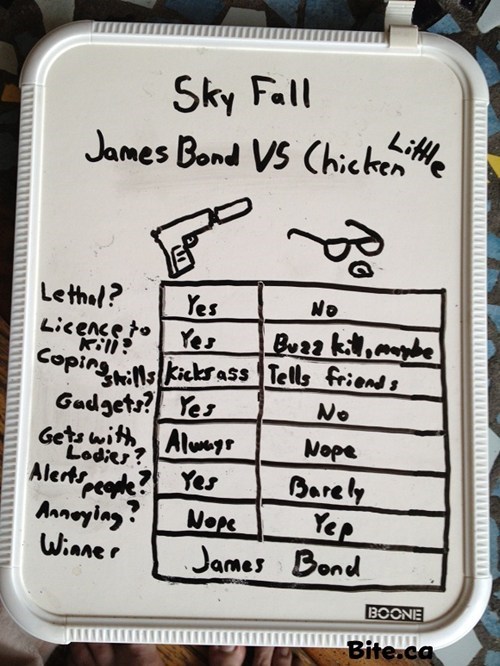 Sky Fall
James Bond VS Chicken Little
Lethal? Yes No
Licence to Kill? Yes Buzz kill, maybe
Coping skills Kicks ass Tells friends
Gadgets? Yes No
Gets with Ladies? Always Nope
Alerts people? Yes Barely
Annoying? Nope Yep
Winner James Bond
BOONE
Bite.ca